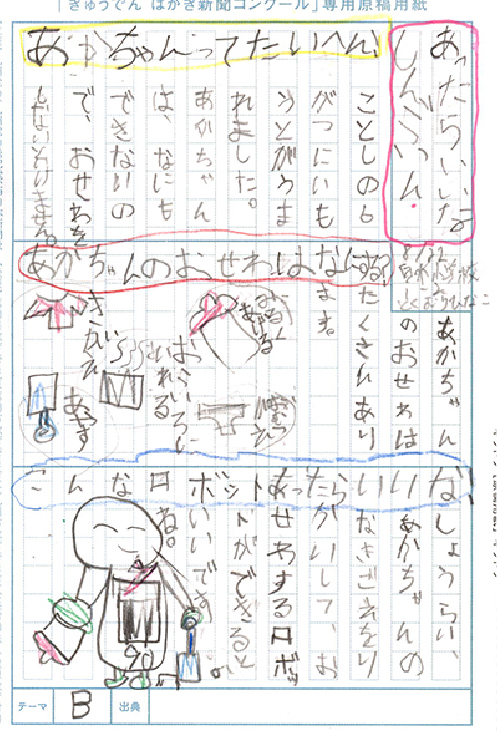 「きゅうでん はがき新聞コンクール」専用原稿用紙
あったらいいな
しんぶん
あかちゃんってたいへん
ことしの6
がつにいも
うとがうま
れました。
あかちゃん
は、なにも
できないの
で、おせわを
しないといけません。
あかちゃんのおせわはなにする?
あかちゃん
のおせわは
たくさんあり
ます。
みるく
あげる
おふろいれる
きがえ
あやす
こんなロボットあったらいいな
しょうらい、
あかちゃんの
なきごえをり
かいして、お
せわするロボッ
トができると
いいです
ね。
テーマ
B
出典